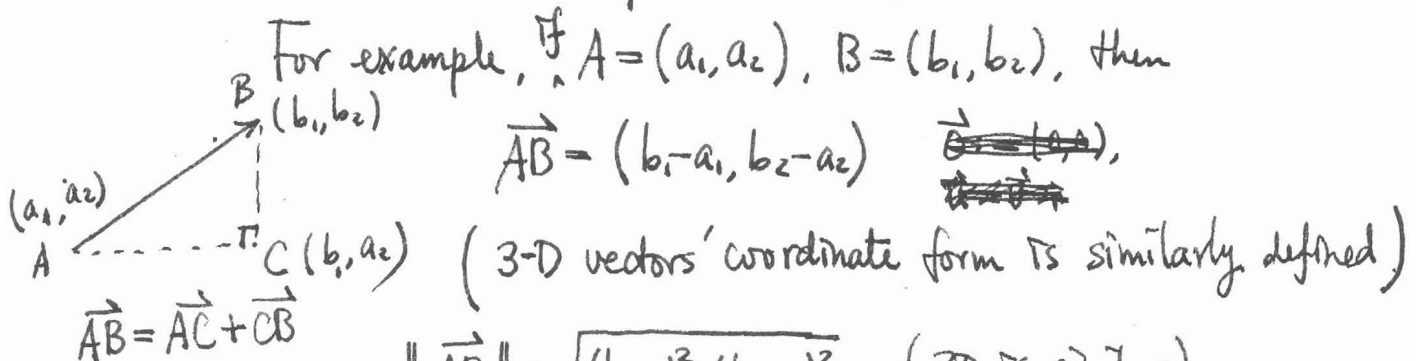 For example, if A = (a₁, a₂), B = (b₁, b₂), then
B (b₁, b₂)
AB⃗ = (b₁-a₁, b₂-a₂)
(a₁, a₂)
A
C (b₁, a₂)
(3-D vectors' coordinate form is similarly defined)
AB⃗ = AC⃗ + CB⃗